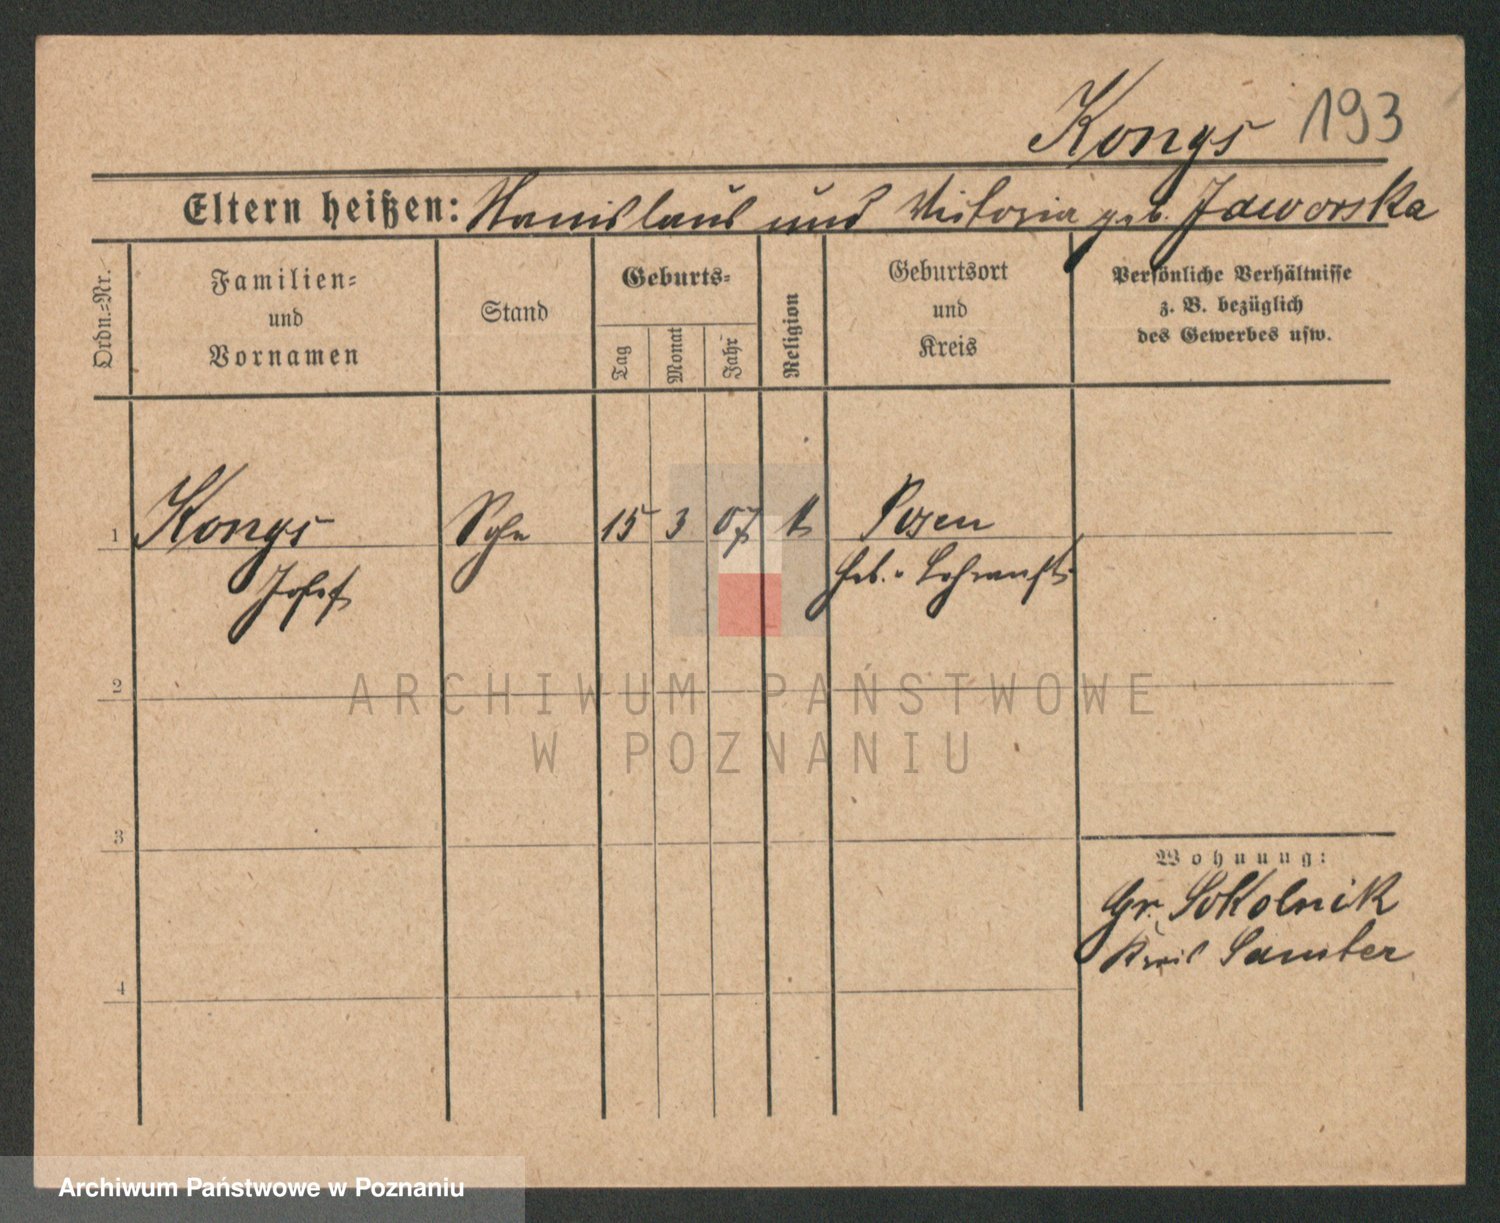 Kongs 193
Eltern heißen: Stanislaus und Victoria geb. Jaworska
Ordn.=Nr.
Familien=
und
Vornamen
Stand
Geburts=
Tag
Monat
Jahr
Religion
Geburtsort
und
Kreis
Persönliche Verhältnisse
z. B. bezüglich
des Gewerbes usw.
1 Kongs Sohn 15 3 07 k Posen
Josef Heb.-Lehranst.
2
ARCHIWUM PAŃSTWOWE
W POZNANIU
3
Wohnung:
Gr. Sokolnik
Kreis Samter
4
Archiwum Państwowe w Poznaniu